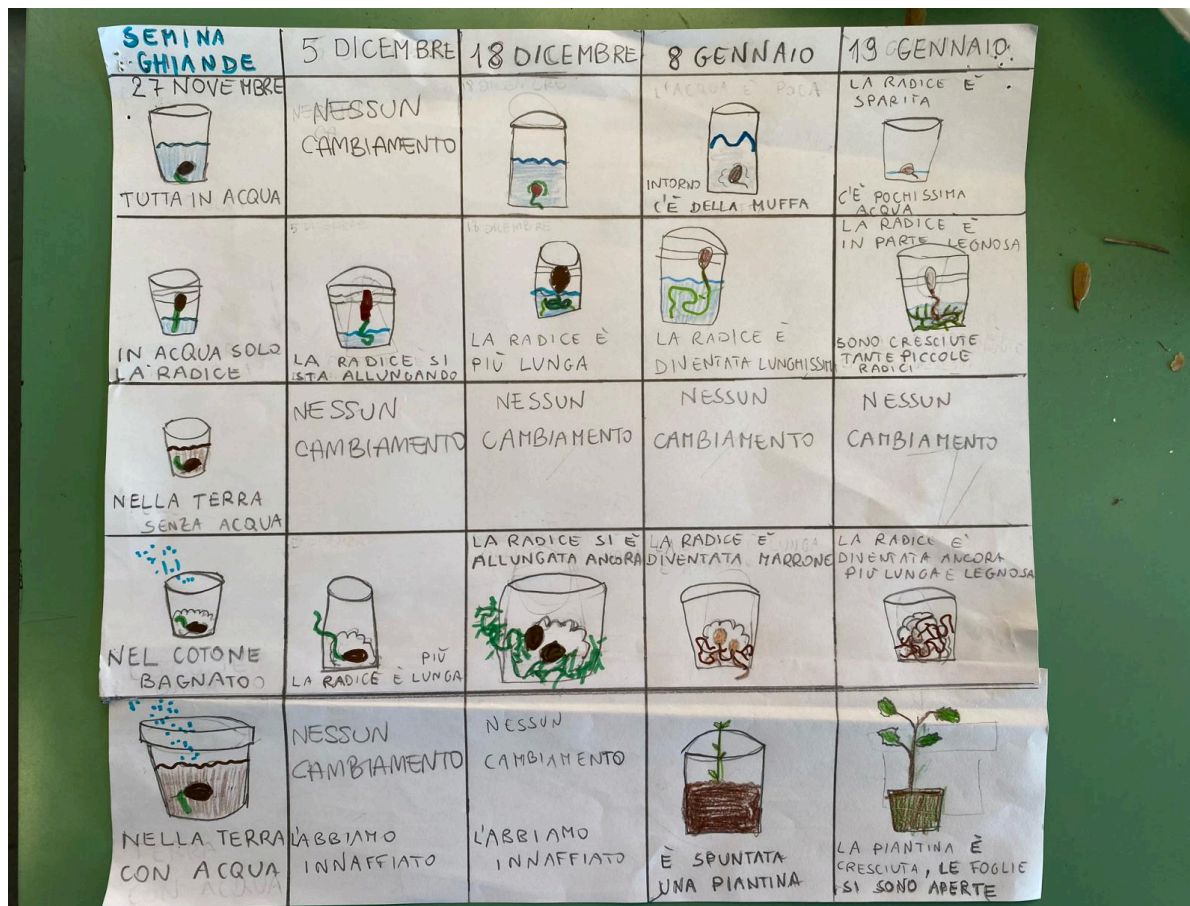 SEMINA
GHIANDE
5 DICEMBRE
18 DICEMBRE
8 GENNAIO
19 GENNAIO
27 NOVEMBRE
TUTTA IN ACQUA
NESSUN
CAMBIAMENTO
18 DICEMBRE
L'ACQUA È POCA
INTORNO
C'È DELLA MUFFA
LA RADICE È
SPARITA
C'È POCHISSIMA
ACQUA
IN ACQUA SOLO
LA RADICE
5 DICEMBRE
LA RADICE SI
STA ALLUNGANDO
18 DICEMBRE
LA RADICE È
PIÙ LUNGA
LA RADICE È
DIVENTATA LUNGHISSIM
LA RADICE È
IN PARTE LEGNOSA
SONO CRESCIUTE
TANTE PICCOLE
RADICI
NELLA TERRA
SENZA ACQUA
NESSUN
CAMBIAMENTO
NESSUN
CAMBIAMENTO
NESSUN
CAMBIAMENTO
NESSUN
CAMBIAMENTO
NEL COTONE
BAGNATO
PIÙ
LA RADICE È LUNGA
LA RADICE SI È
ALLUNGATA ANCORA
LA RADICE È
DIVENTATA MARRONE
LA RADICE E'
DIVENTATA ANCORA
PIÙ LUNGA E LEGNOSA
NELLA TERRA
CON ACQUA
NESSUN
CAMBIAMENTO
L'ABBIAMO
INNAFFIATO
NESSUN
CAMBIAMENTO
L'ABBIAMO
INNAFFIATO
È SPUNTATA
UNA PIANTINA
LA PIANTINA È
CRESCIUTA, LE FOGLIE
SI SONO APERTE